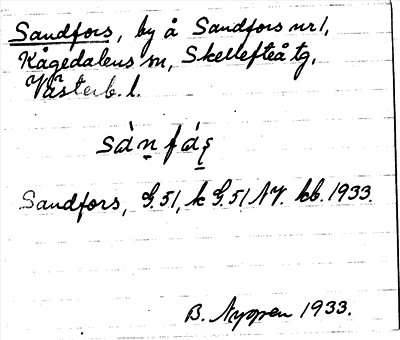 Sandfors, by å Sandfors nr 1,
Kågedalens sn, Skellefteå tg,
Västerb. l.
sàn̤ fá̤ş
Sandfors, G.51, k G.51 NV. kb. 1933.
B. Nygren 1933.